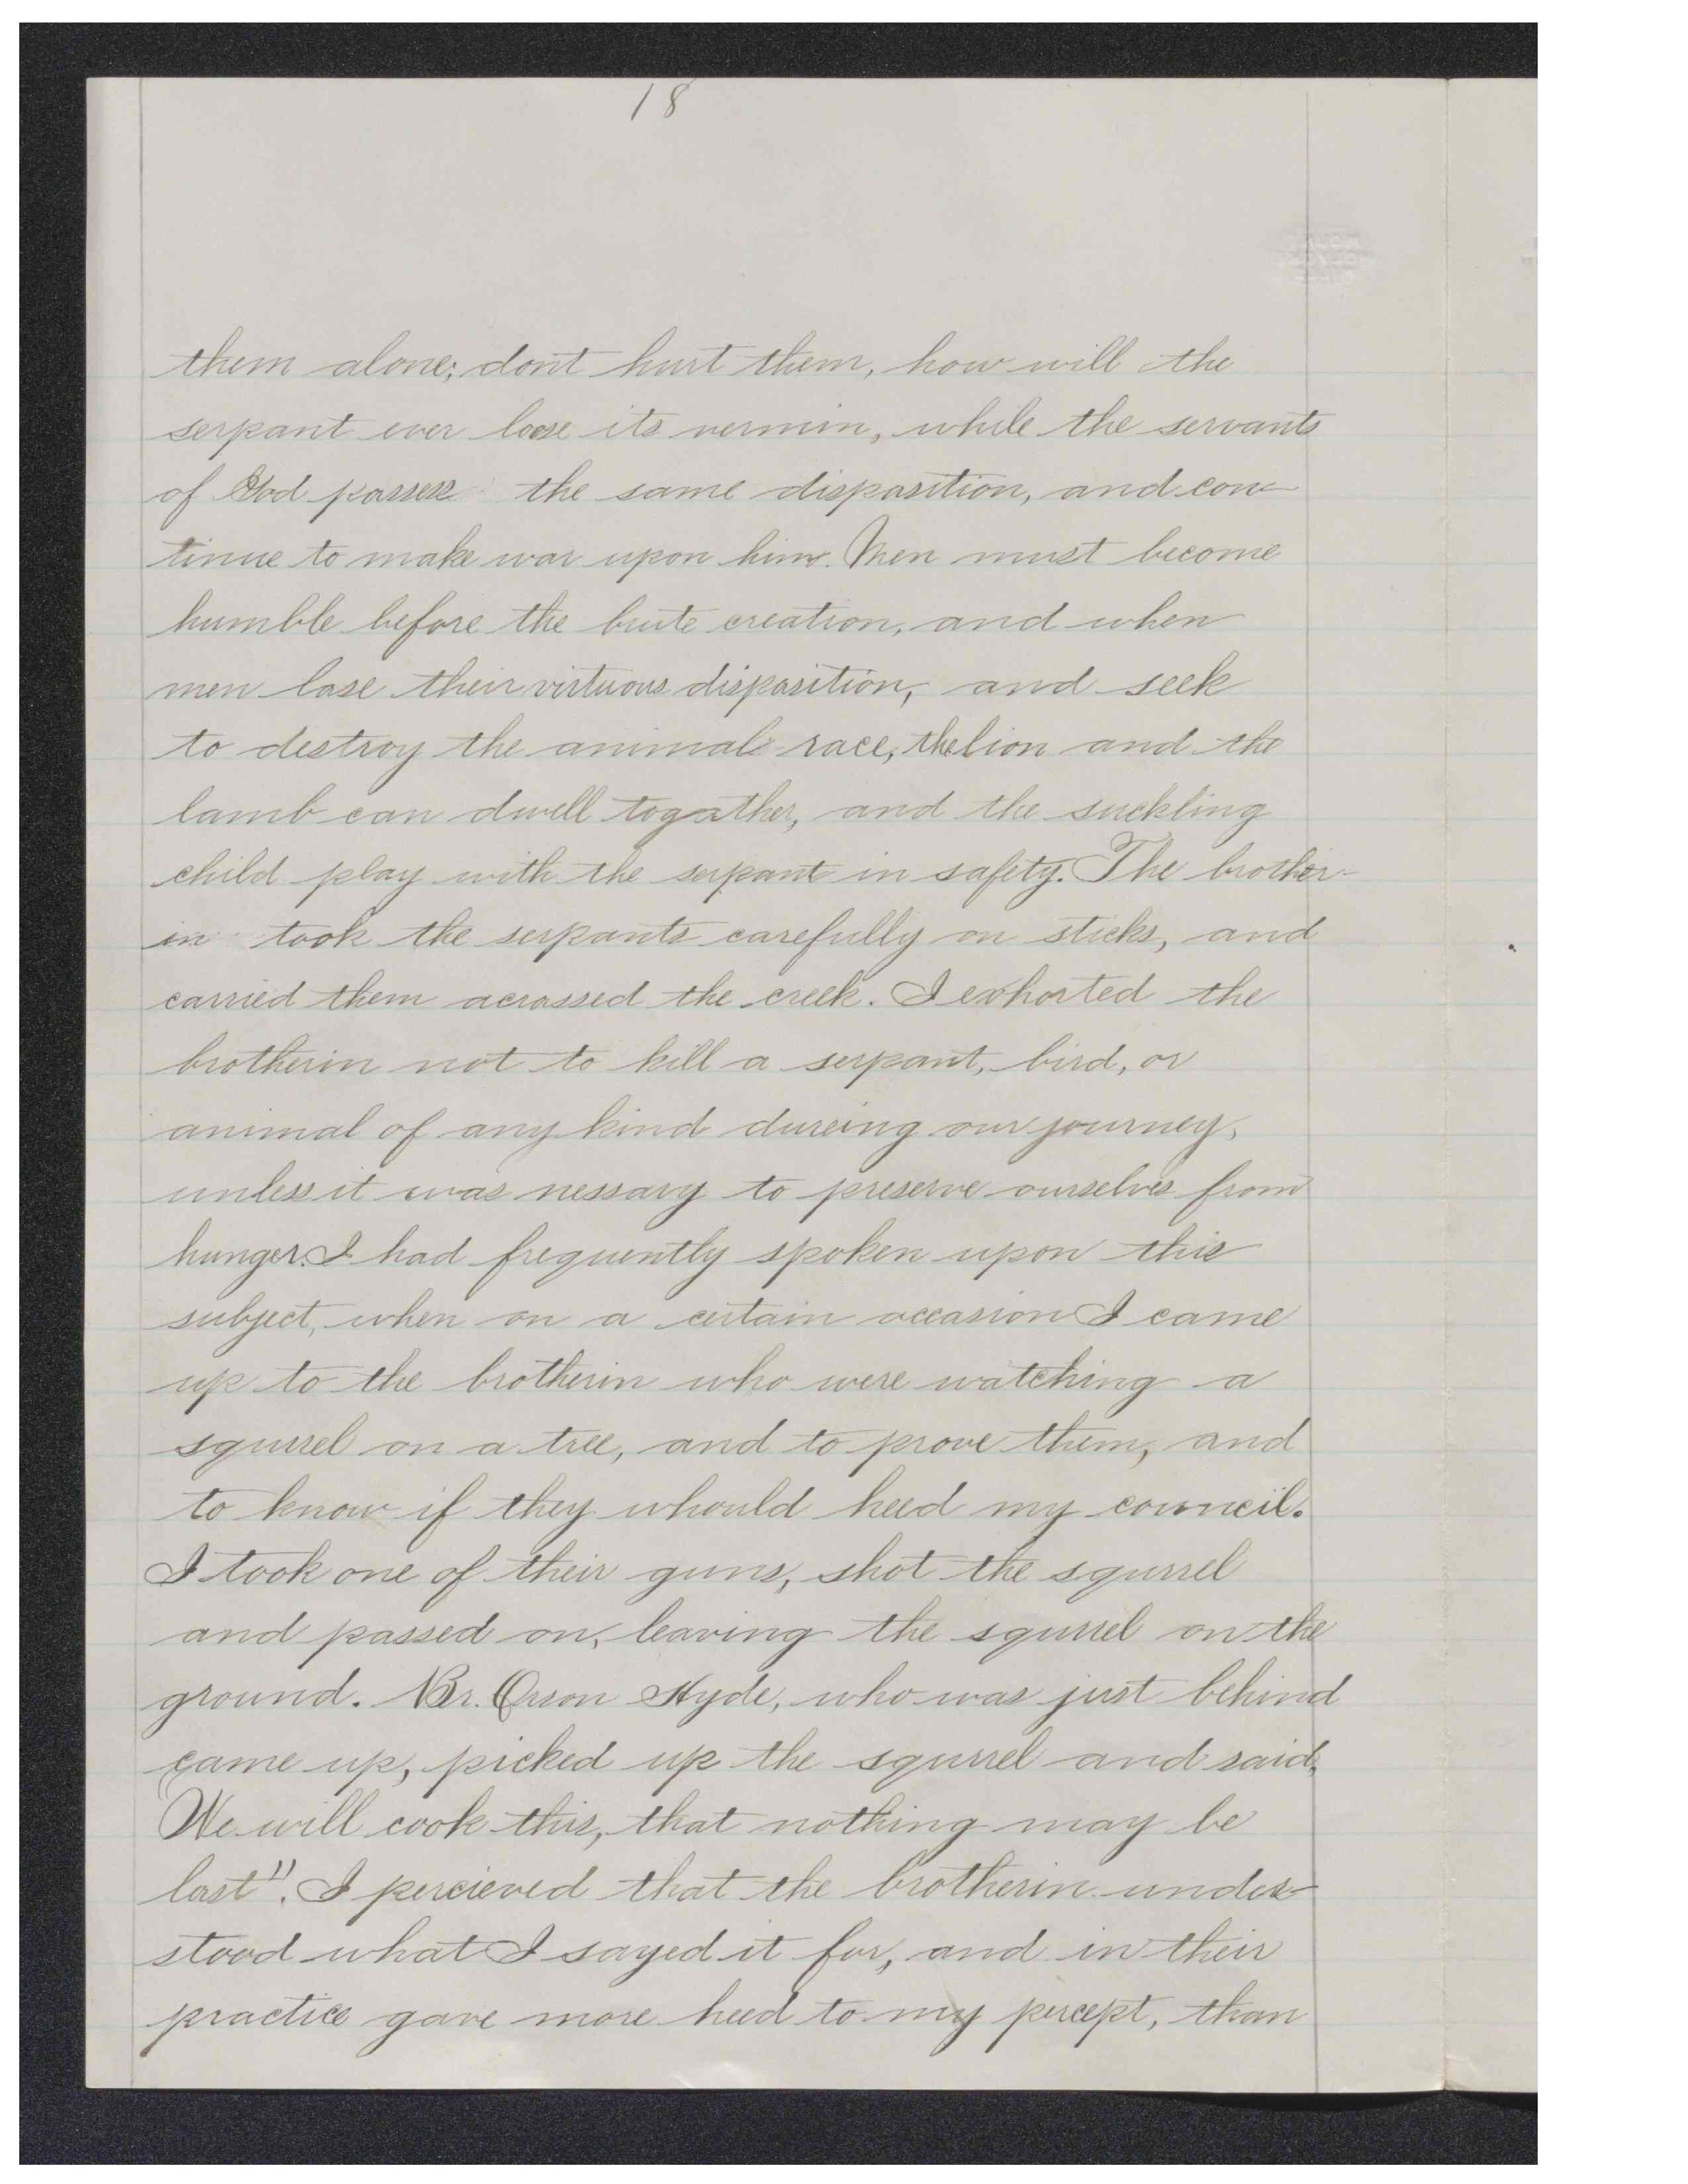 18
them alone; dont hurt them, how will the
serpant ever loose its vermin, while the servants
of God possess the same disposition, and con-
tinue to make war upon him. Men must become
humble before the brute creation, and when
men lose their virtuous disposition, and seek
to destroy the animal race, the lion and the
lamb can dwell togather, and the suckling
child play with the serpant in safety. The brother-
in took the serpants carefully on sticks, and
carried them acrossed the creek. I exhorted the
brotherin not to kill a serpant, bird, or
animal of any kind dureing our journey,
unless it was nessary to preserve ourselves from
hunger. I had frequently spoken upon this
subject, when on a certain occasion I came
up to the brotherin who were watching a
squrrel on a tree, and to prove them, and
to know if they whould heed my council.
I took one of their guns, shot the squrrel
and passed on, leaving the squrrel on the
ground. Br. Orson Hyde, who was just behind
came up, picked up the squrrel and said,
We will cook this, that nothing may be
lost". I percieved that the brotherin under-
stood what I sayed it for, and in their
practice gave more heed to my percept, than